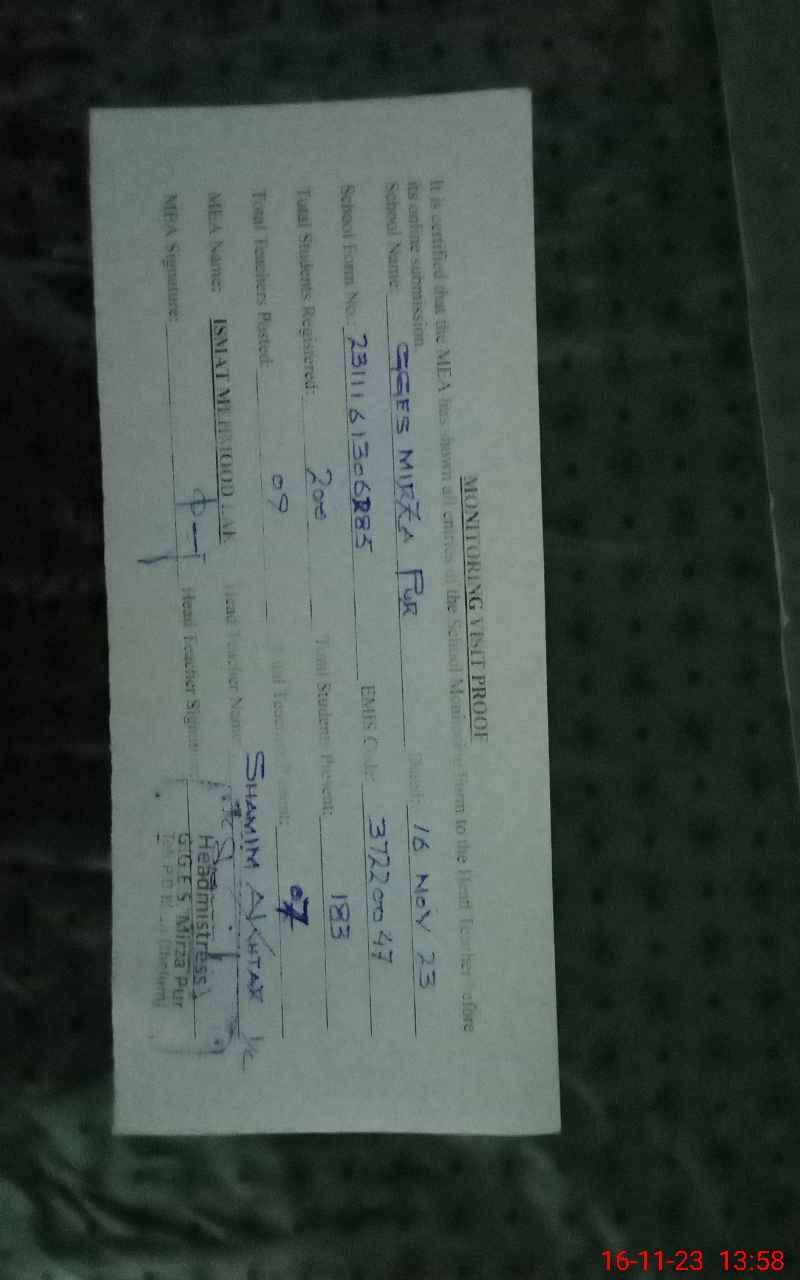 MONITORING VISIT PROOF
It is certified that the MEA has shown all entries of the School Monitoring Form to the Head Teacher before
its online submission.
School Name: GGES MIRZA PUR Dated: 16 NOV 23
School Form No. EMIS Code: 37220047
Total Students Registered: 200 Total Students Present: 183
Total Teachers Posted: 09 Total Teachers Present: 07
MEA Name: ISMAT MEHMOOD Head Teacher Name: SHAMIM AKHTAR I/C
MEA Signature: Head Teacher Signature:
Headmistress
G.G.E.S. Mirza Pur
(Jhelum)
16-11-23 13:58